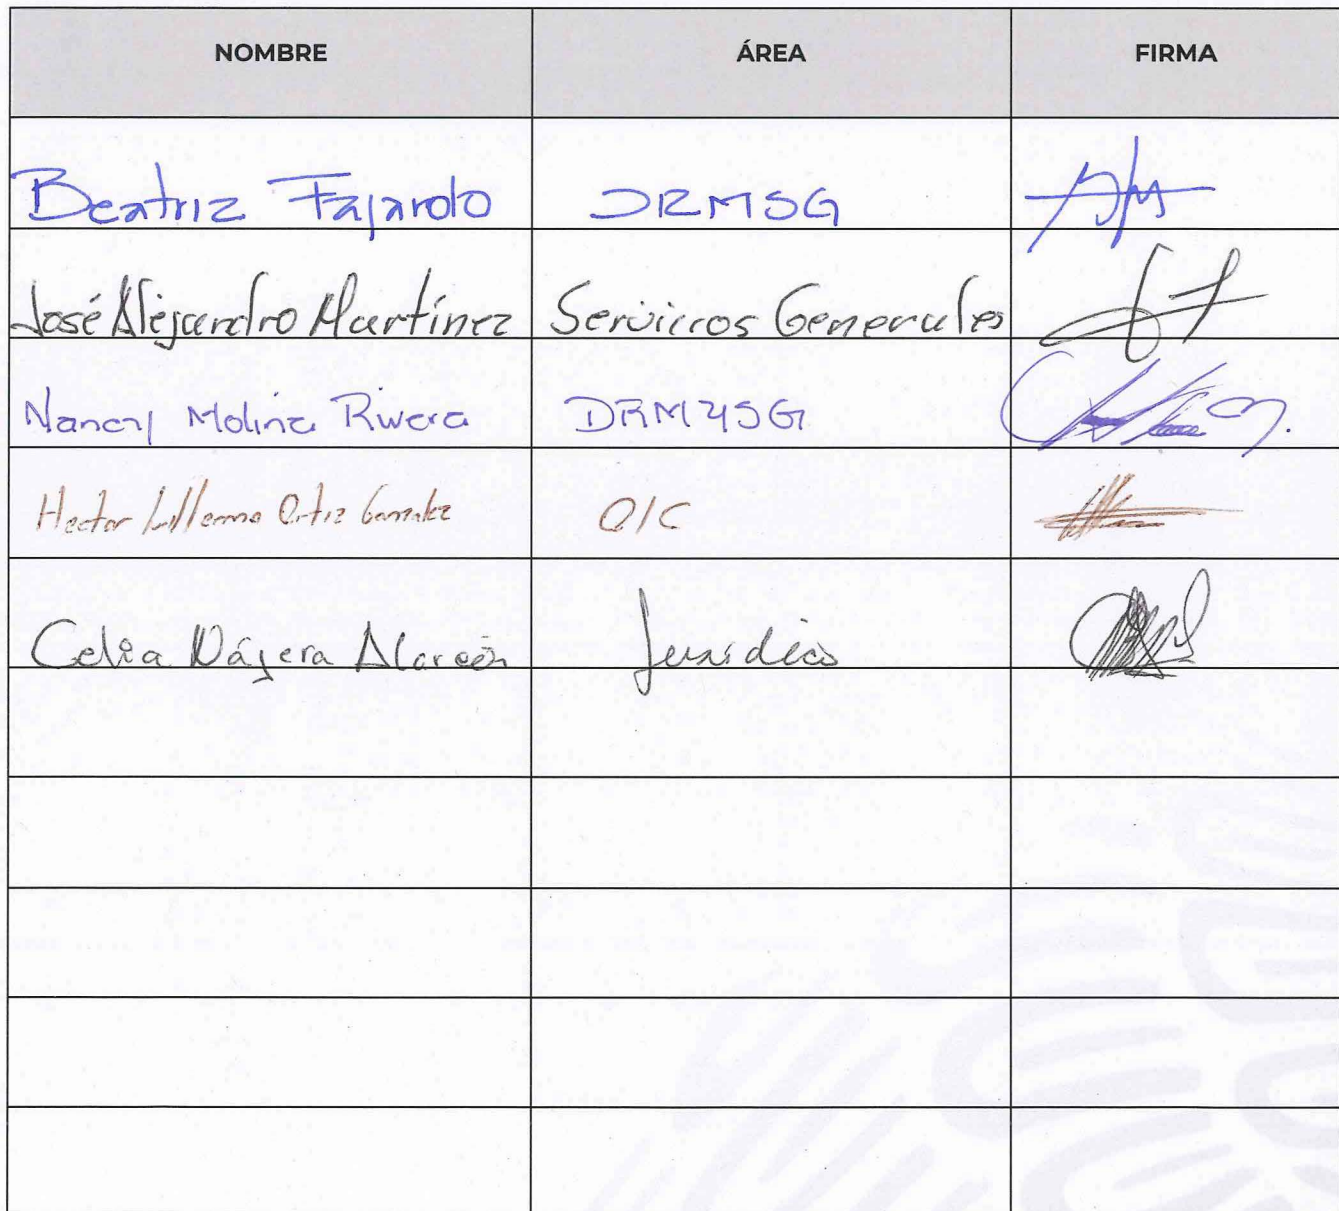 NOMBRE ÁREA FIRMA
Beatriz Fajardo DRMSG
José Alejandro Martínez Servicios Generales
Nancy Molina Rivera DRMYSG
Hector Ortiz Gonzalez OIC
Celia Nájera Alarcón Jurídico